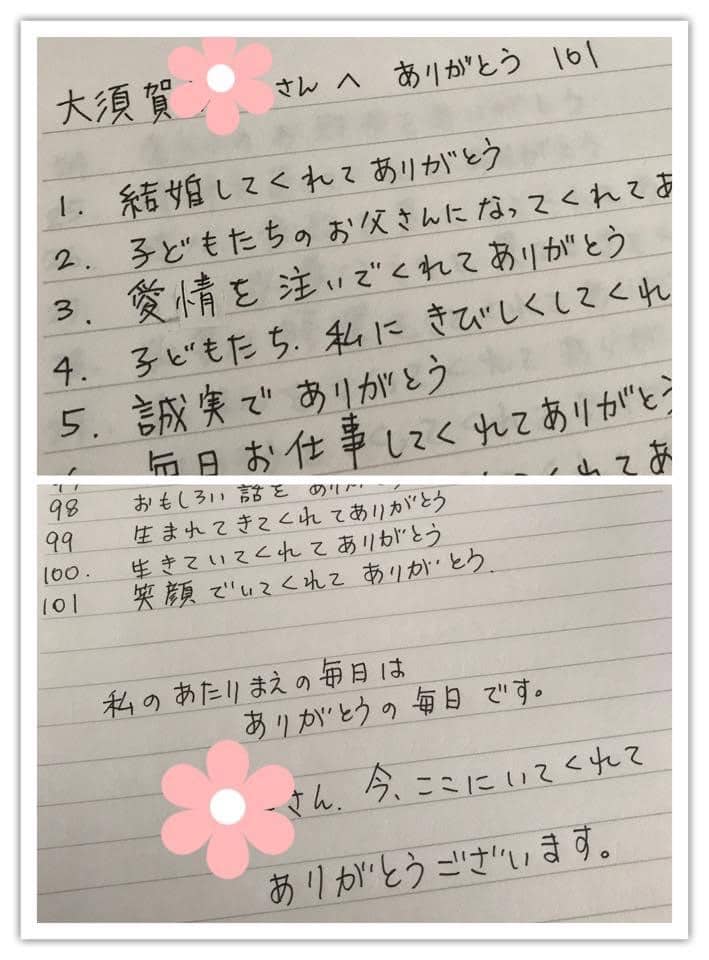 大須賀 さんへ ありがとう 101
1. 結婚してくれてありがとう
2. 子どもたちのお父さんになってくれてあ
3. 愛情を注いでくれてありがとう
4. 子どもたち、私にきびしくしてくれ
5. 誠実でありがとう
毎日お仕事してくれてありがとう
くれてあ
98 おもしろい話を
99 生まれてきてくれてありがとう
100. 生きていてくれてありがとう
101 笑顔でいてくれてありがとう。
私のあたりまえの毎日は
ありがとうの毎日です。
さん、今、ここにいてくれて
ありがとうございます。